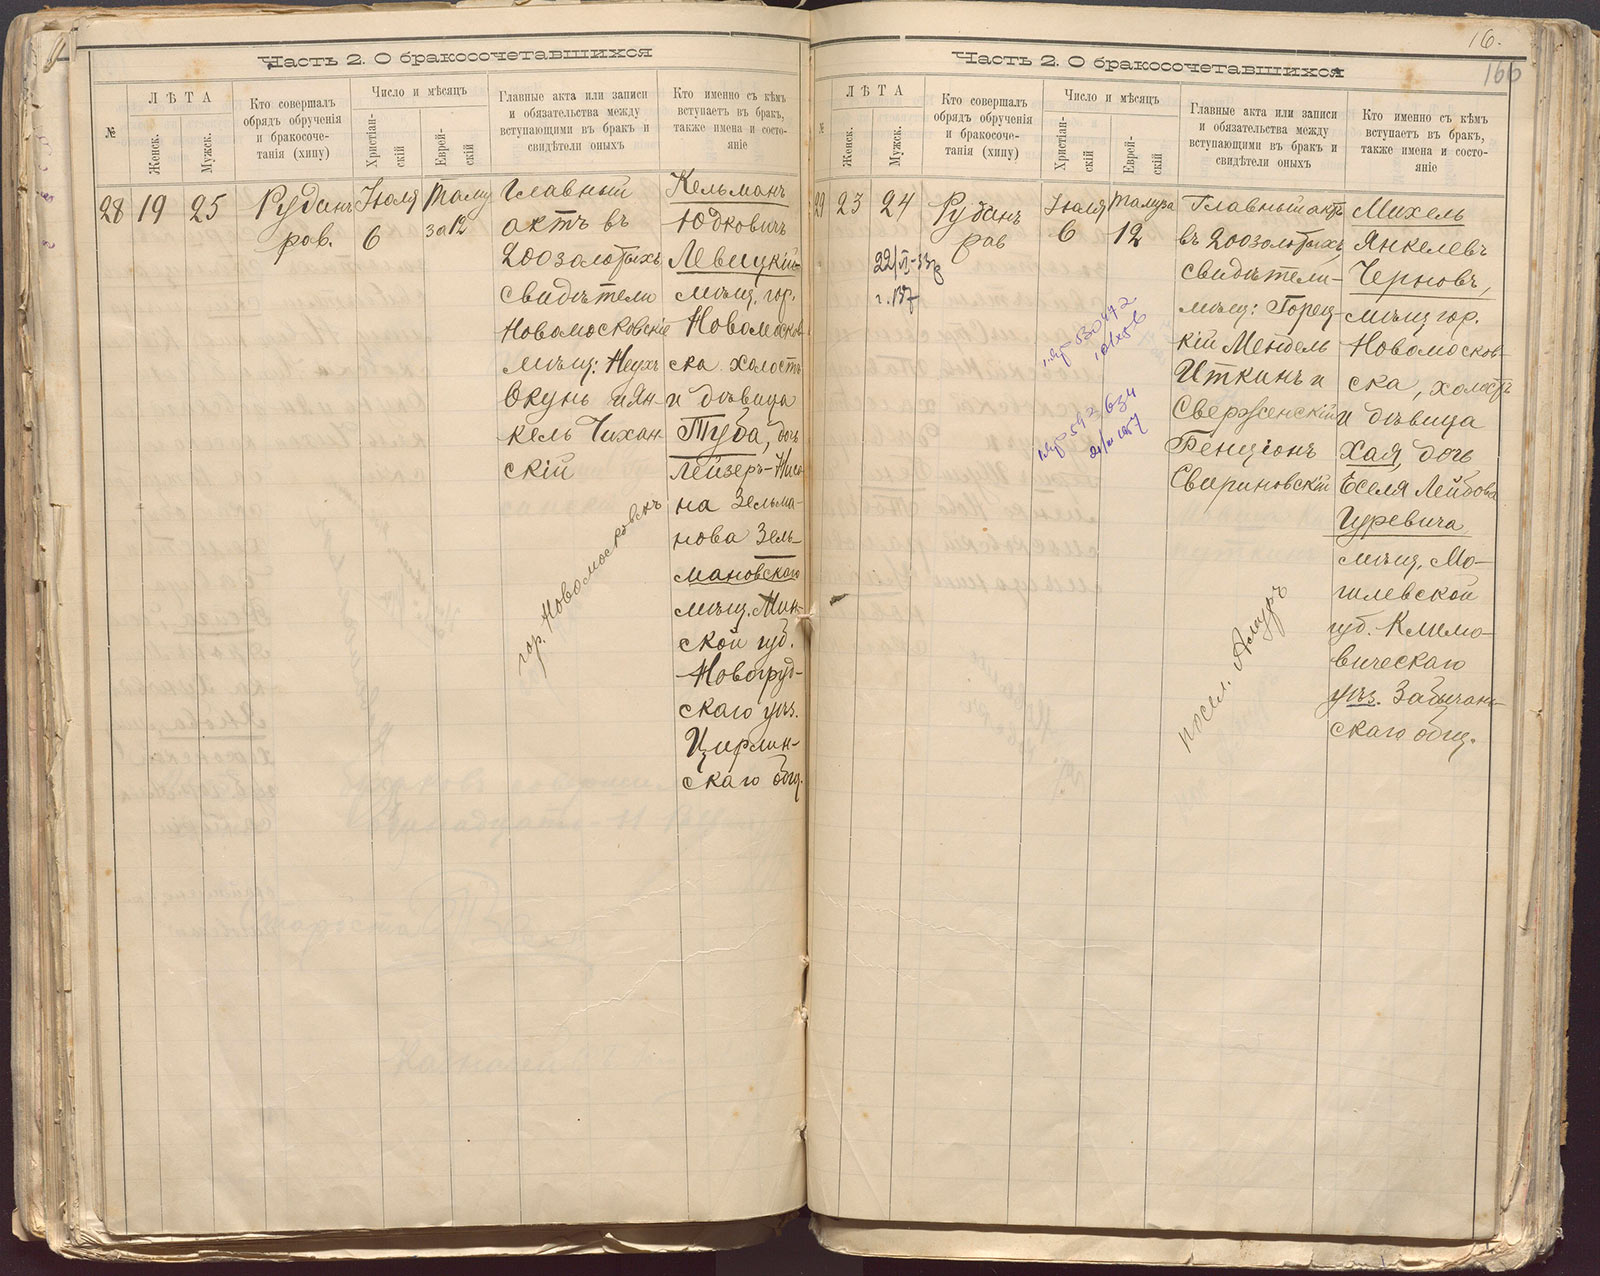 Часть 2. О бракосочетавшихся
№
ЛѢТА
Женск.
Мужск.
Кто совершалъ
обрядъ обрученія
и бракосоче-
танія (хипу)
Число и мѣсяцъ
Христіан-
скій
Еврей-
скій
Главные акта или записи
и обязательства между
вступающими въ бракъ и
свидѣтели оныхъ
Кто именно съ кѣмъ
вступаетъ въ бракъ,
также имена и состо-
яніе
28
19
25
Рубанъ
рав.
Іюля
6
Таму
за 12
Главный
актъ въ
200 золотыхъ
свидѣтели
Новомосковскіе
мѣщ: Неухъ
Окунь и Ян-
кель Чихан-
скій
гор. Новомосковскъ
Кельманъ
Юдковичъ
Левицкій
мѣщ. гор.
Новомосков-
ска холостъ
и дѣвица
Туба, дочь
Лейзеръ-Нисо-
на Зельма-
нова Зель-
мановскаго
мѣщ. Мин-
ской губ.
Новогруд-
скаго уѣз.
Цирлин-
скаго общ.
16.
166
Часть 2. О бракосочетавшихся
№
ЛѢТА
Женск.
Мужск.
Кто совершалъ
обрядъ обрученія
и бракосоче-
танія (хипу)
Число и мѣсяцъ
Христіан-
скій
Еврей-
скій
Главные акта или записи
и обязательства между
вступающими въ бракъ и
свидѣтели оныхъ
Кто именно съ кѣмъ
вступаетъ въ бракъ,
также имена и состо-
яніе
29
23
24
Рубанъ
рав
Іюля
6
Тамуза
12
Главный актъ
въ 200 золотыхъ
свидѣтели-
мѣщ: Горец-
кій Мендель
Иткинъ и
Сверженскій
Бенціонъ
Свириновскій
посел. Амуръ
Михель
Янкелевъ
Черновъ,
мѣщ. гор.
Новомосков-
ска, холостъ
и дѣвица
Хая, дочь
Еселя Лейбова
Гуревича
мѣщ. Мо-
гилевской
губ. Климо-
вическаго
уѣз. Забычан-
скаго общ.